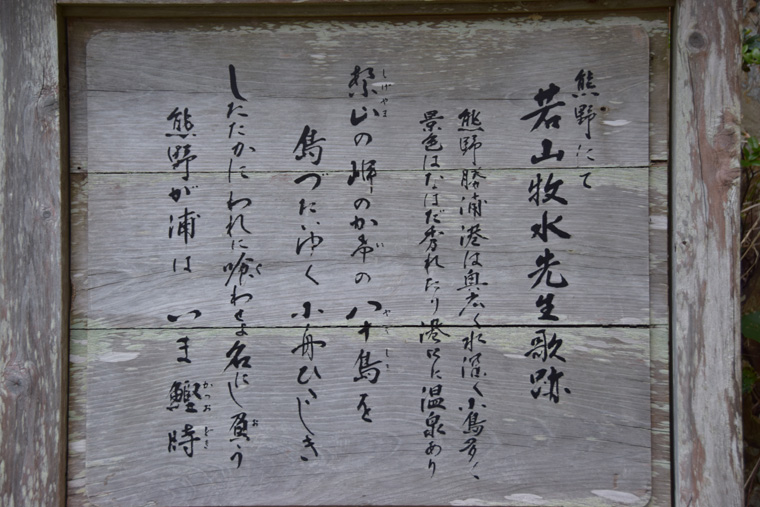 熊野にて
若山牧水先生歌跡
熊野勝浦港は奥広く水深く小島多く
景色はなはだ秀れたり港口に温泉あり
しげやま
繁山の岬のかげの八十島を
やそしま
島づたいゆく小舟ひさしき
したたかにわれに喰わせよ名にし負う
く
お
熊野が浦はいま鰹時
かつおどき